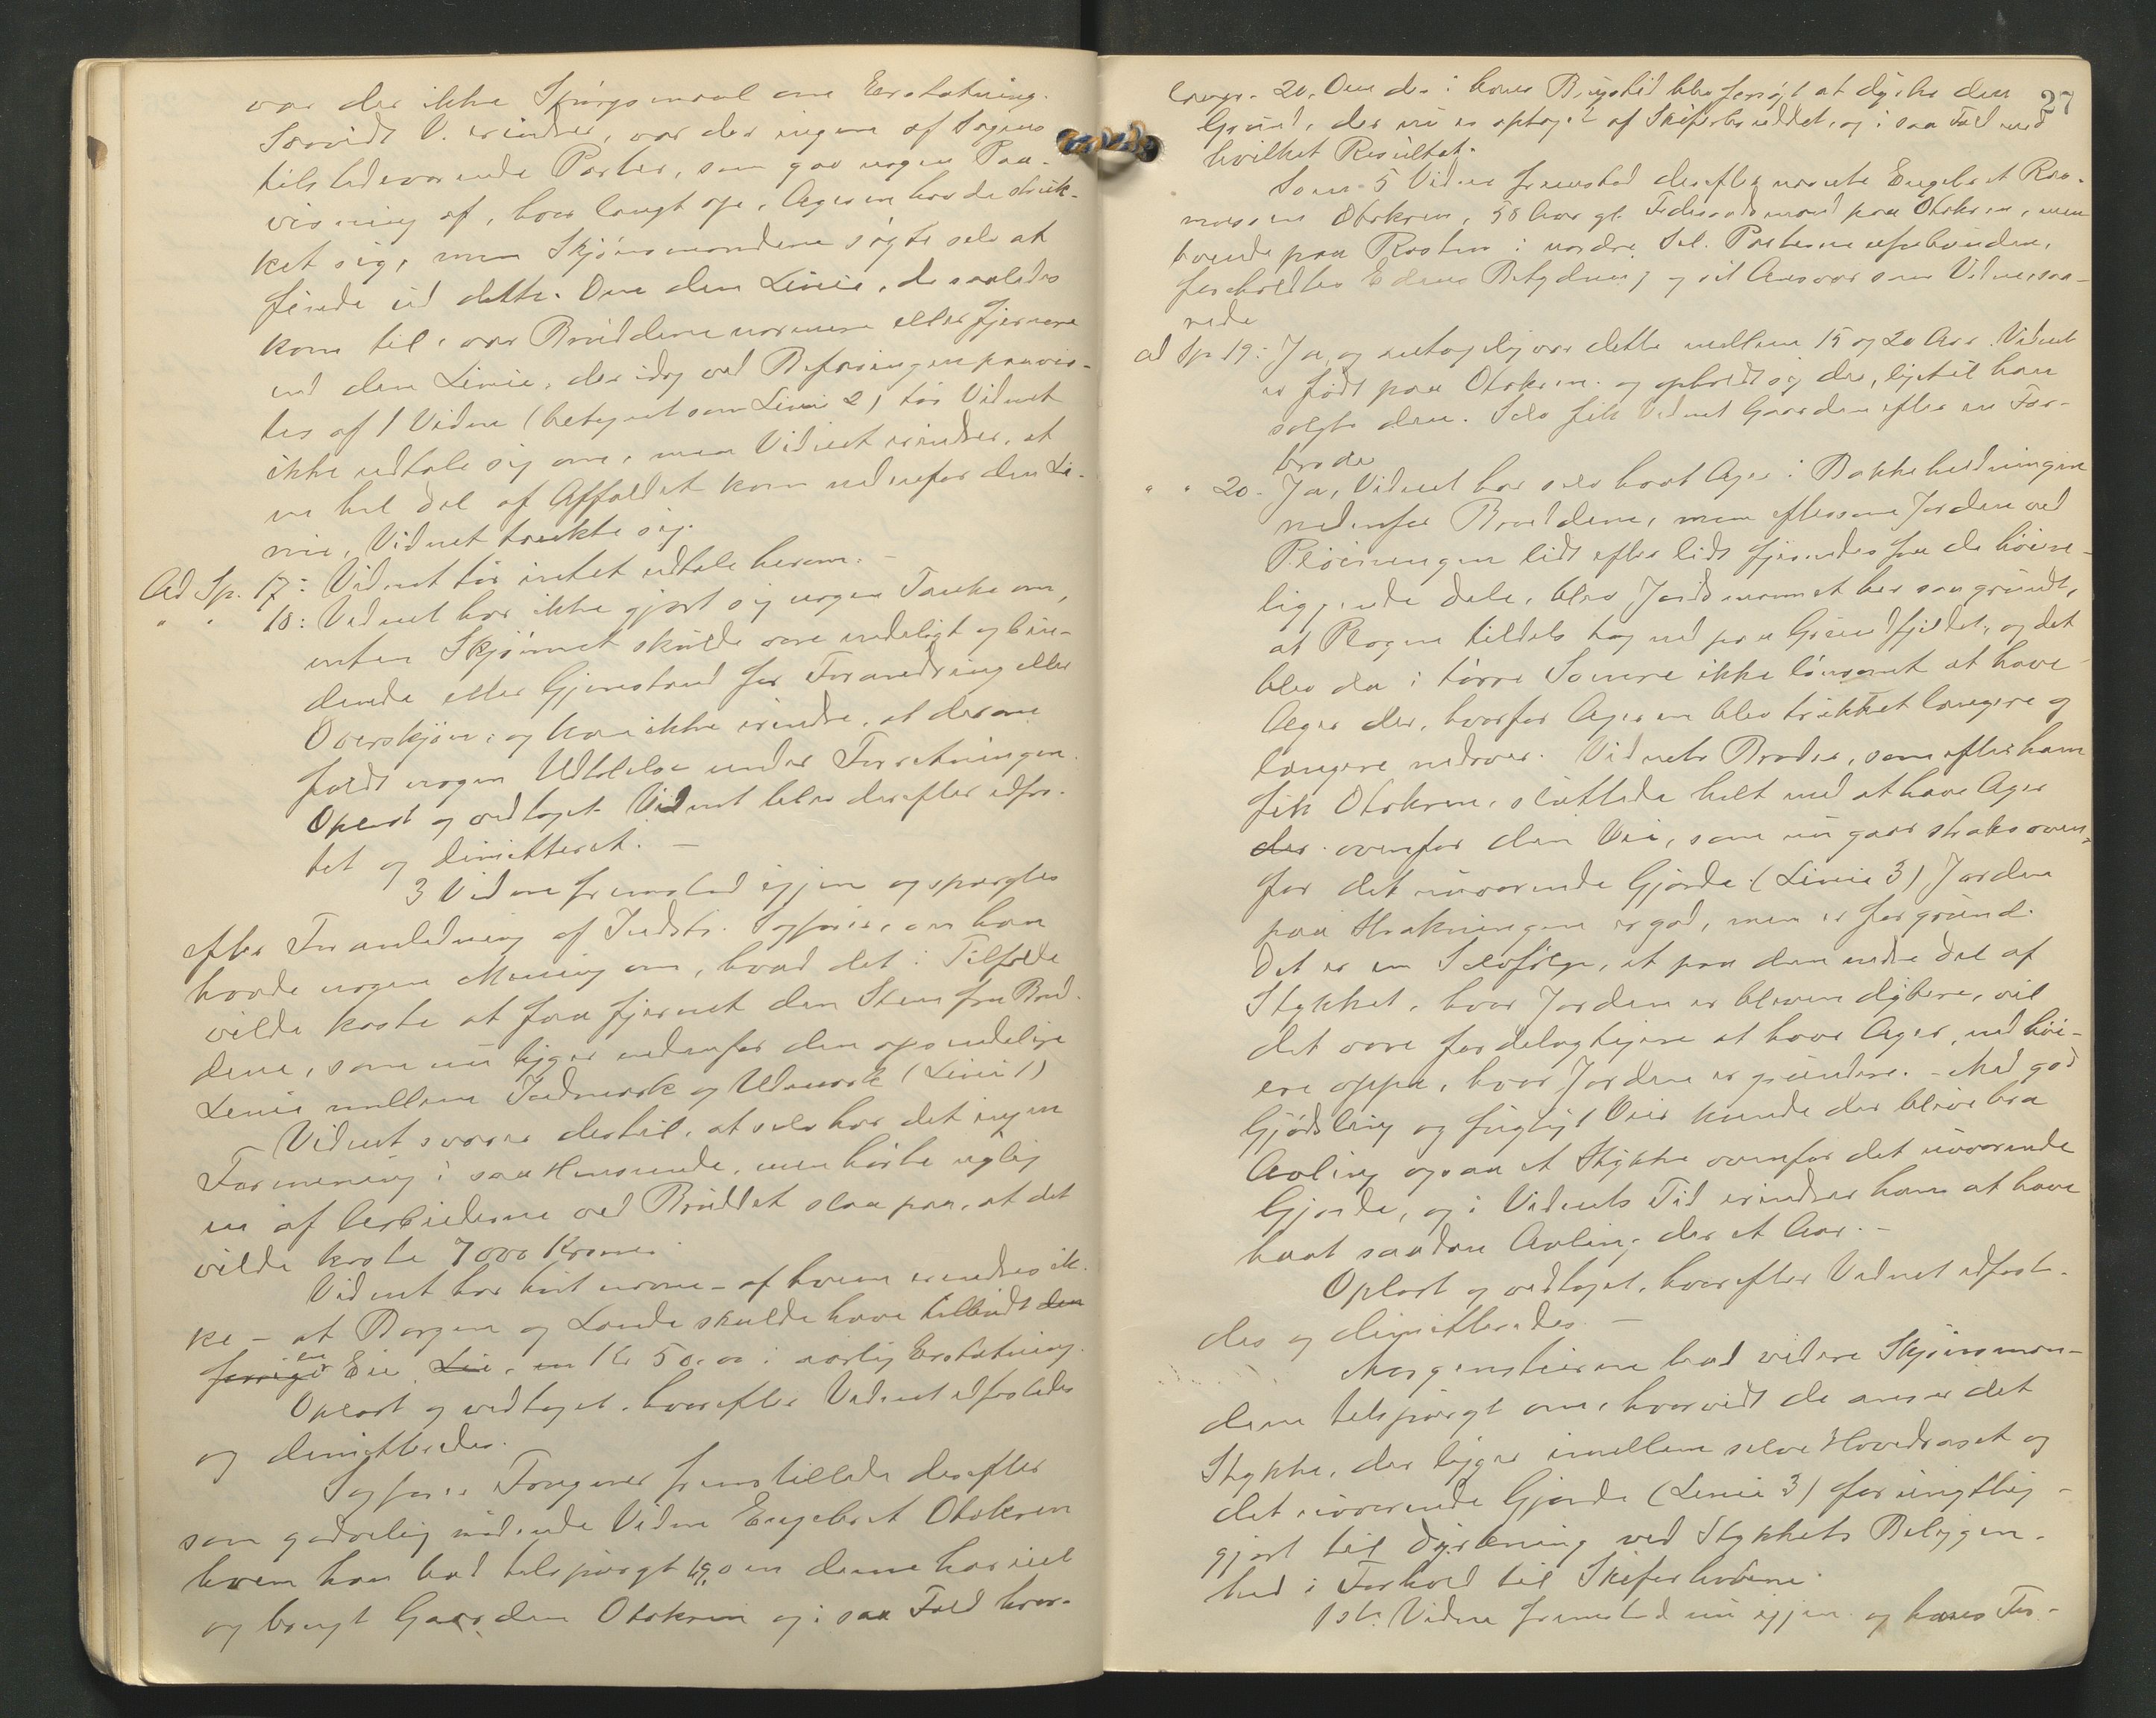 var der ikke Spørgsmaal om Erstatning.
Saavidt V. erindrer, var der ingen af Sagens
tilstedeværende Parter, som gav nogen Paa-
visning af, hvor langt op, Ageren havde strak-
ket sig, men Skjønsmændene søgte selv at
finde ud dette. Om den Linie, de saaledes
kom til, var Bruddene nærmere eller fjernere
end den Linie, der idag ved Befaringen paavis-
tes af 1 Vidne (betegnet som Linie 2) tør Vidnet
ikke udtale sig om, men Vidnet erindrer, at
en hel Del af Affaldet kom nedenfor den Li-
nie, Vidnet tænkte sig.
Ad Sp. 17: Vidnet tør intet udtale herom. -
" " 18: Vidnet har ikke gjort sig nogen Tanke om,
enten Skjønnet skulde være endeligt og bin-
dende eller Gjenstand for Forandring eller
Overskjøn, og kan ikke erindre, at derom
faldt nogen Udtalelse under Forretningen.
Oplæst og vedtaget. Vidnet blev derefter edfæs-
tet og dimitteret. -
3 Vidne fremstod igjen og spurgtes
efter Foranledning af Indstr. Sagfører, om han
havde nogen Mening om, hvad det i Tilfælde
vilde koste at faa fjernet den Sten fra Brud-
dene, som nu ligger nedenfor den oprindelige
Linie mellem Indmark og Udmark (Linie 1)
Vidnet svarer dertil, at selv har det ingen
Formening i saa Henseende, men hørte nylig
en af Arbeiderne ved Bruddet slaa paa, at det
vilde koste 7000 Kroner.
Vidnet har hørt nævne - af hvem erindres ik-
ke - at Borgen og Lande skulde have tilbudt den
forrige Eier Kr 50.00 i aarlig Erstatning.
Oplæst og vedtaget, hvorefter Vidnet edfæstedes
og dimitteredes.
Sagfører Fougner fremstillede derefter
som godvillig mødende Vidne Engebret Otokren
hvem han bad tilspurgt 19, om denne har eiet
og brugt Gaarden Otokren og i saa Fald hvor-
27
længe. 20, Om der i hans Brugstid blev forsøgt at dyrke den
Grund, der nu er optaget af Skiferbruddet, og i saa Fald med
hvilket Resultat.
Som 5 Vidne fremstod derefter nævnte Engebret Ras-
mussen Otokren, 58 Aar gl. Føderaadsmand paa Otokren, men
boende paa Rosten i nordre Sel. Parterne uforbunden,
foreholdtes Edens Betydning og sit Ansvar som Vidne, sva-
rede
ad Sp. 19: Ja, og antagelig var dette mellem 15 og 20 Aar. Vidnet
er født paa Otokren og opholdt sig der, ligetil han
solgte den. Selv fik Vidnet Gaarden efter en Far-
broder
" " 20. Ja, Vidnet har selv havt Ager i Bakkeheldningen
nedenfor Bruddene, men eftersom Jorden ved
Pløiningen lidt efter lidt fjernedes fra de høiere-
liggende Dele, blev Jordsmonnet her saa grundt,
at Plogen tildels tog ned paa Grundfjeldet, og det
blev da i tørre Somre ikke lønsomt at have
Ager der, hvorfor Ageren blev trukket længere og
længere nedover. Vidnets Broder, som efter ham
fik Otokren, sluttede helt med at have Ager
der ovenfor den Vei, som nu gaar straks oven-
for det nuværende Gjærde (Linie 3) Jorden
paa Strækningen er god, men er for grund.
Det er en Selvfølge, at paa den nedre Del af
Stykket, hvor Jorden er bleven dybere, vil
det være fordelagtigere at have Ager, end høi-
ere oppe, hvor Jorden er grundere. - Med god
Gjødsling og fugtigt Veir kunde der blive bra
Avling ogsaa et Stykke ovenfor det nuværende
Gjærde, og i Vidnets Tid erindrer han at have
havt saadan Avling der et Aar. -
Oplæst og vedtaget, hvorefter Vidnet edfæste-
des og dimitteredes. -
Morgenstierne bad videre Skjønsmæn-
dene tilspurgt om, hvorvidt de anser det
Stykke, der ligger imellem selve Hovedraset og
det nuværende Gjærde (Linie 3) for unyttig-
gjort til Dyrkning ved Stykkets Beliggen-
hed i Forhold til Skiferhobene.
1ste Vidne fremstod nu igjen og hans For-